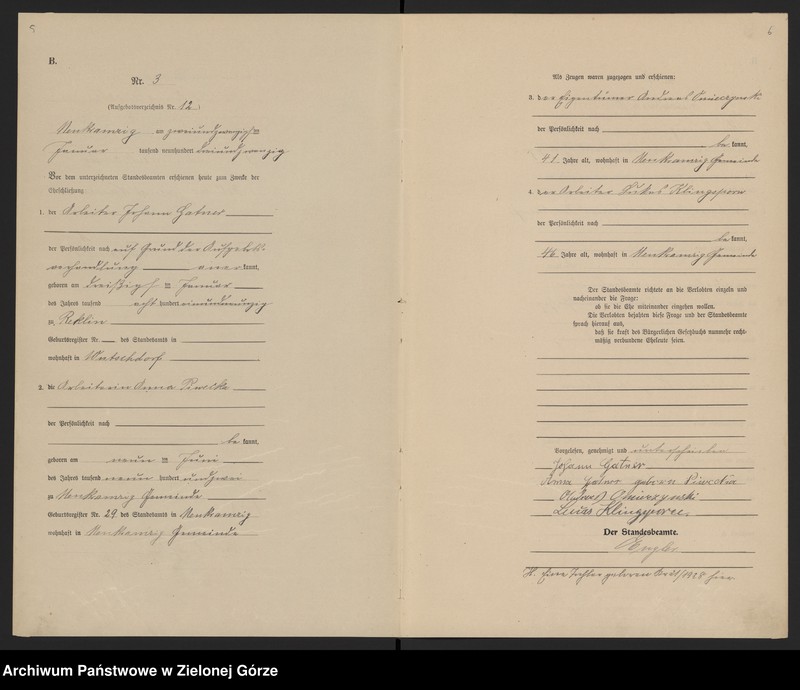 5
B.
Nr. 3
(Aufgebotsverzeichnis Nr. 12)
Neukramzig am zweiundzwanzigsten
Januar tausend neunhundert dreiundzwanzig
Vor dem unterzeichneten Standesbeamten erschienen heute zum Zwecke der
Eheschließung:
1. der Arbeiter Johann
der Persönlichkeit nach auf Grund der Aufgebots-
verhandlung kannt,
geboren am dreißigsten Januar
des Jahres tausend acht hundert einundneunzig
zu
Geburtsregister Nr. des Standesamts in
wohnhaft in
2. die Arbeiterin Anna
der Persönlichkeit nach
be kannt,
geboren am neunten Juni
des Jahres tausend neun hundert undzwei
zu Neukramzig Gemeinde
Geburtsregister Nr. 29 des Standesamts in Neukramzig
wohnhaft in Neukramzig Gemeinde
6
Als Zeugen waren zugezogen und erschienen:
3. der Eigentümer Andreas
der Persönlichkeit nach
be kannt,
41 Jahre alt, wohnhaft in Neukramzig Gemeinde
4. der Arbeiter Lukas Klingsporn
der Persönlichkeit nach
be kannt,
46 Jahre alt, wohnhaft in Neukramzig Gemeinde
Der Standesbeamte richtete an die Verlobten einzeln und
nacheinander die Frage:
ob sie die Ehe miteinander eingehen wollen.
Die Verlobten bejahten diese Frage und der Standesbeamte
sprach hierauf aus,
daß sie kraft des Bürgerlichen Gesetzbuchs nunmehr recht-
mäßig verbundene Eheleute seien.
Vorgelesen, genehmigt und unterschrieben
Johann
Anna geborene
Der Standesbeamte.
Tochter geboren 1928 hier.
Archiwum Państwowe w Zielonej Górze